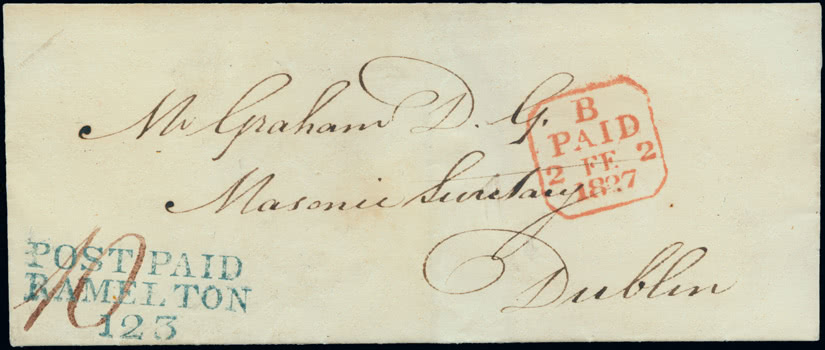 Mr Graham D. G.
Masonic Secretary
Dublin
B
PAID
2 FE 2
1827
POST PAID
RAMELTON
123
10